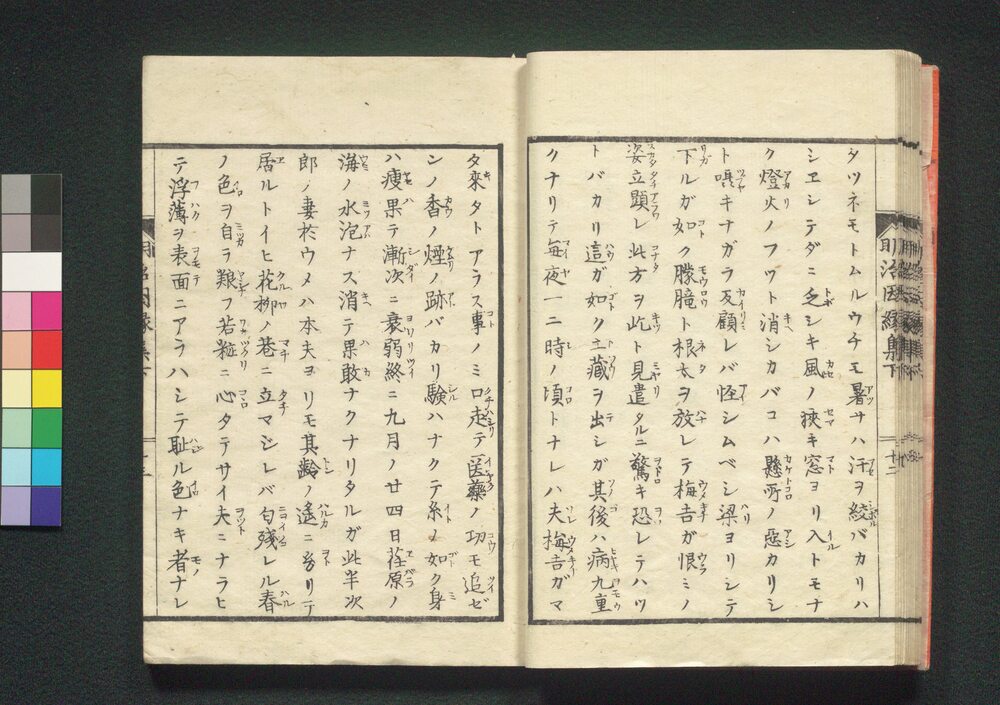 タツネモトムルウチモ暑サハ汗ヲ絞バカリハ
シヱシテダニ乏シキ風ノ狹キ窓ヨリ入トモナ
ク燈火ノフツト消シカバコハ懸所ノ惡カリシ
ト喂キナガラ反顧レバ怪シムベシ梁ヨリシテ
下ルガ如ク朦朧ト根太ヲ放レテ梅吉ガ恨ミノ
姿立顕レ此方ヲ屹ト見遣タルニ驚キ恐レテハツ
トバカリ這ガ如ク土藏ヲ出シガ其後ハ病九重
クナリテ毎夜一二時ノ頃トナレハ夫梅吉ガマ
明治因縁集下
十二
タ來タトアラヌ事ノミ口走テ医藥ノ功モ追ゼ
ンノ香ノ煙ノ跡バカリ驗ハナクテ糸ノ如ク身
ハ痩果テ漸次ニ衰弱終ニ九月ノ廿四日荏原ノ
海ノ水泡ナス消テ果敢ナクナリタルガ此半次
郎ノ妻於ウメハ本夫ヨリモ其齢ノ遙ニ劣リテ
居ルトイヒ花柳ノ巷ニ立マジレバ匂殘レル春
ノ色ヲ自ラ粮フ若粧ニ心タテサイ夫ニナラヒ
テ浮薄ヲ表面ニアラハシテ恥ル色ナキ者ナレ